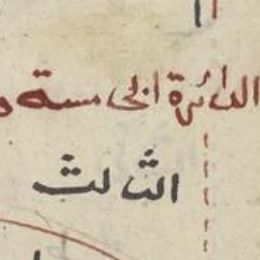 الدائرة الخامسة
الثالث